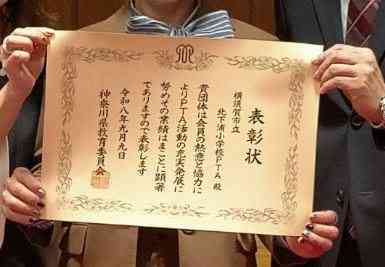 表彰状
横須賀市立
北下浦小学校PTA 殿
貴団体は会員の熱意と協力に
よりPTA活動の充実発展に
努めその業績はまことに顕著
でありますので表彰します
令和八年九月九日
神奈川県教育委員会